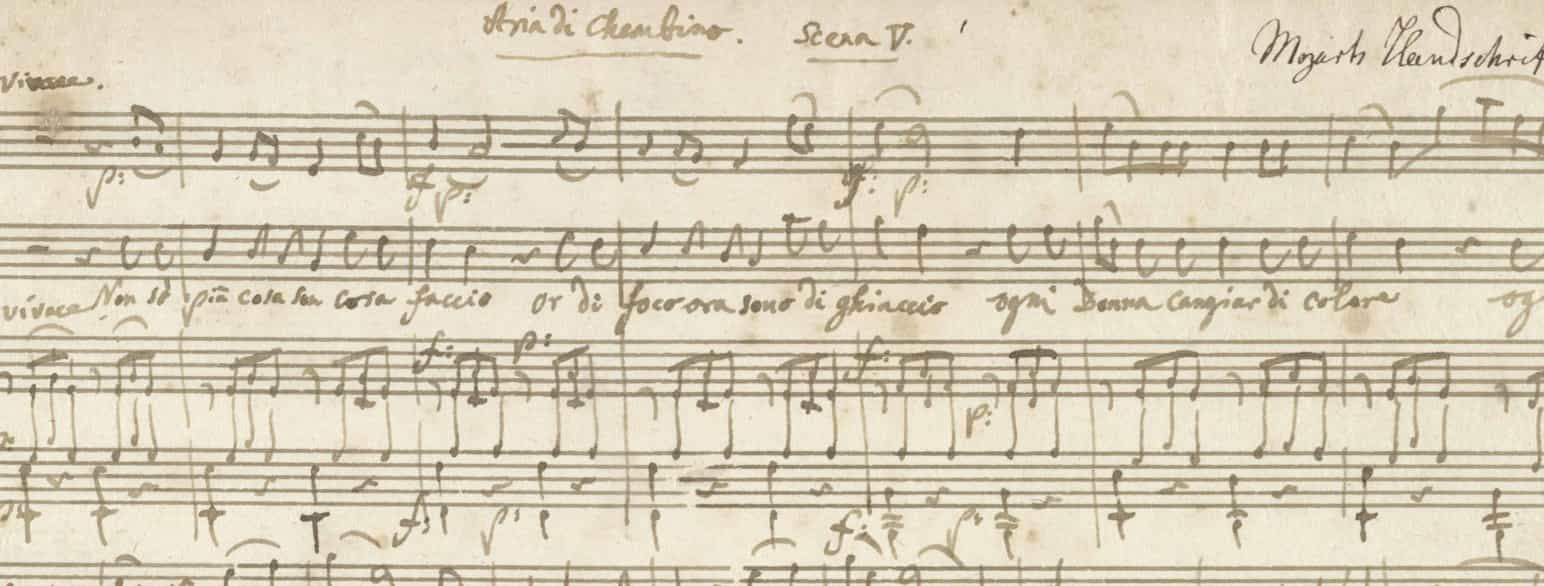 Aria di Cherubino. Scena V.
Mozarts Handschrift
vivace.
p:
f p: f: p:
vivace Non so più cosa son cosa faccio or di foco ora sono di ghiaccio ogni Donna cangiar di colore og
f: p: f: p:
f: p: f: p: